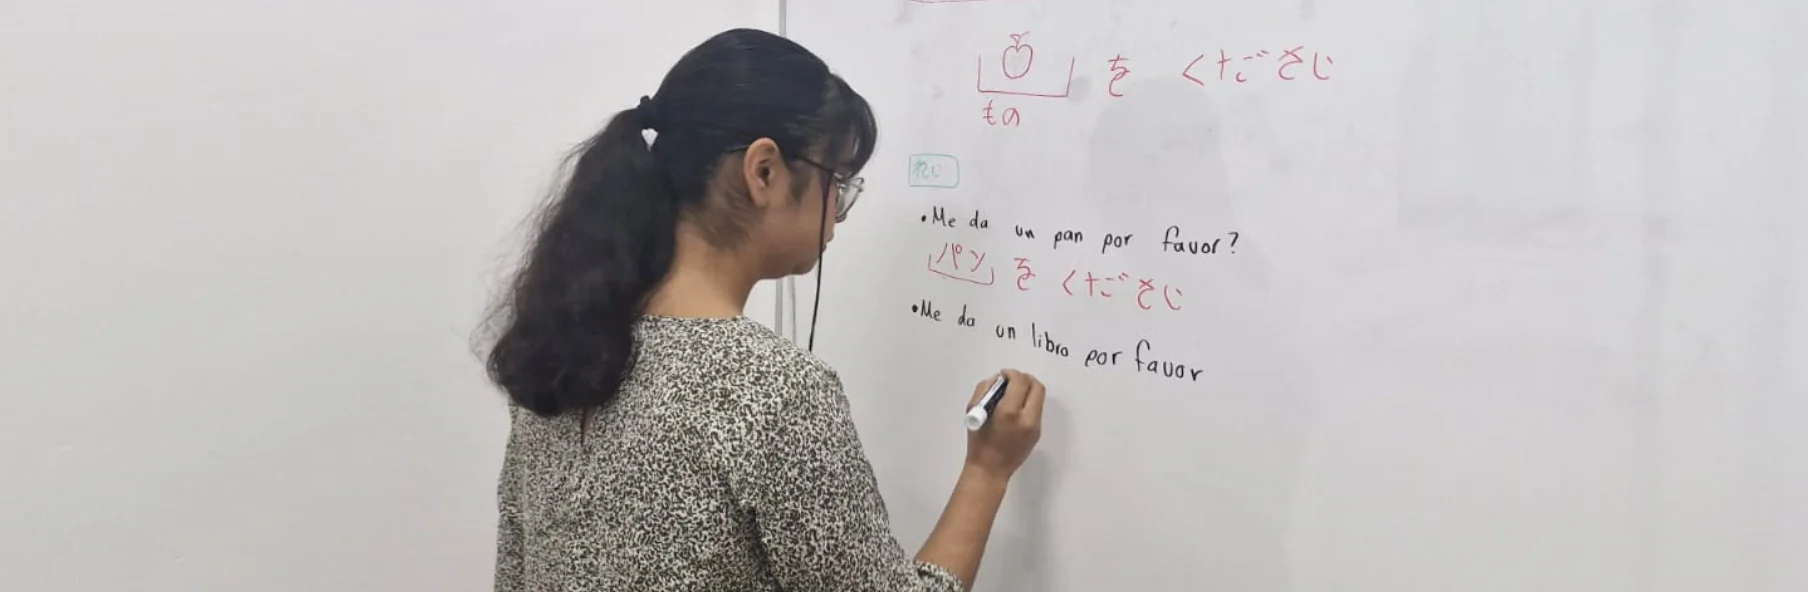 を ください
もの
れい
•Me da un pan por favor?
パン を ください
•Me da un libro por favor